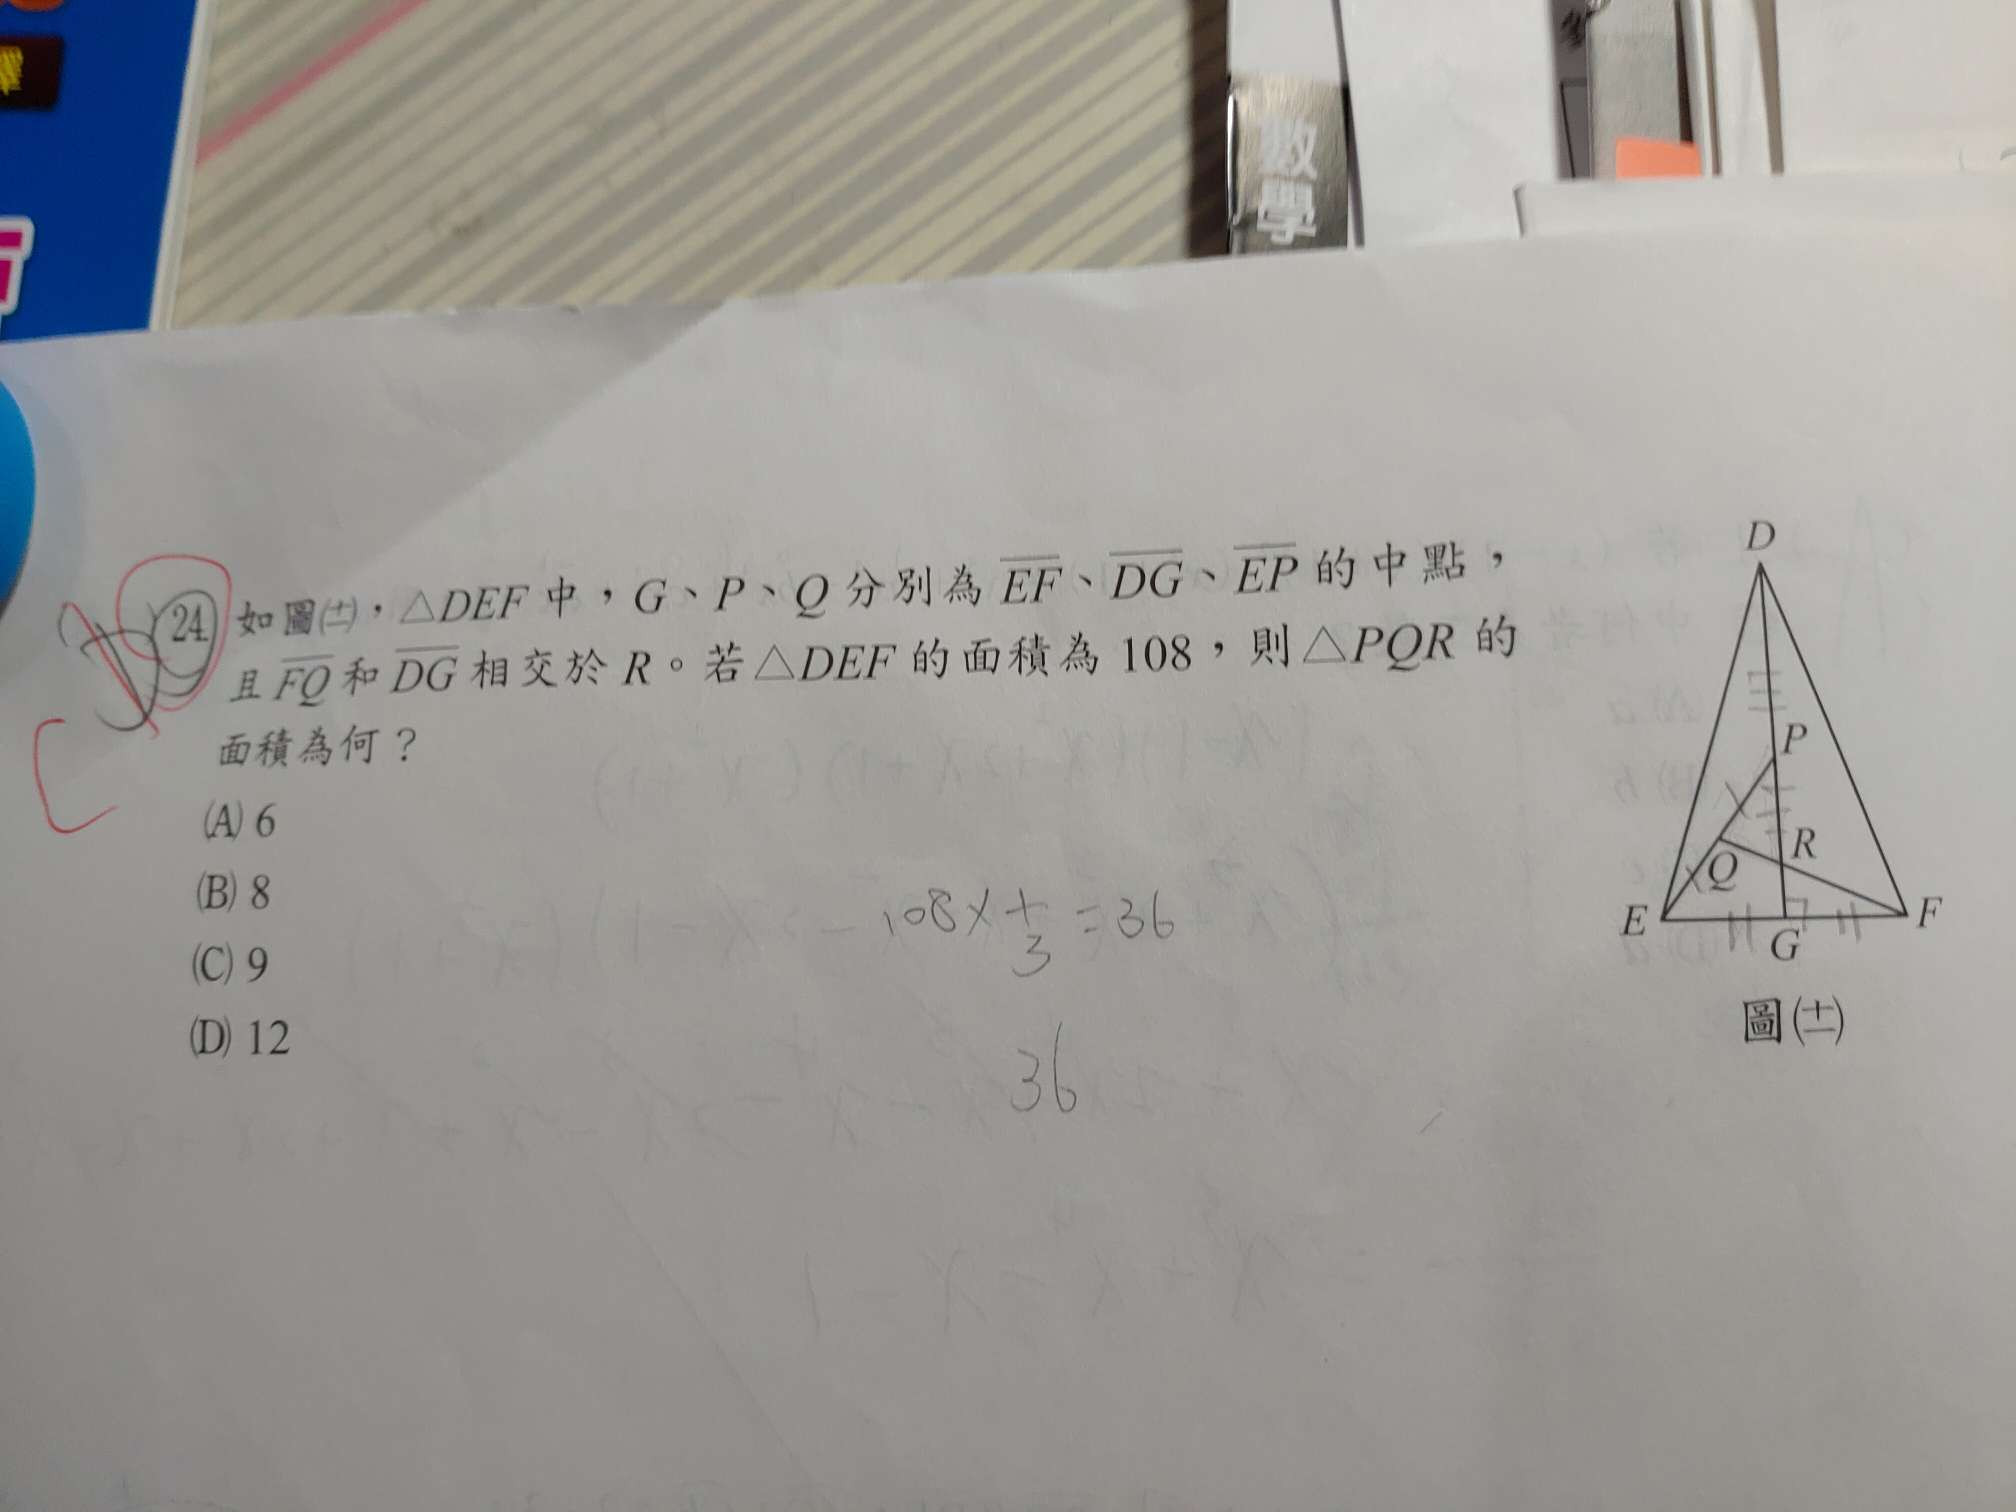 數學
24 如圖(十二),△DEF 中,G、P、Q 分別為 EF、DG、EP 的中點,
且 FQ 和 DG 相交於 R。若 △DEF 的面積為 108,則 △PQR 的
面積為何?
(A) 6
(B) 8
(C) 9
(D) 12
108 × 1/3 = 36
36
D
P
R
Q
E
G
F
圖(十二)